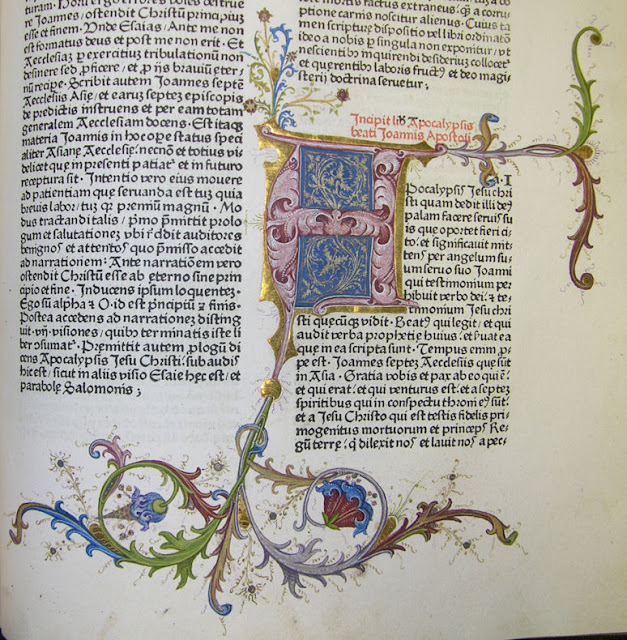 re Joannes, ostendit Christū primā, pius
esse et finem. Vnde Esaias, Ante me non
est formatus deus et post me non erit. Et
Aecclesiaȝ p exercitiuȝ tribulationū non
desinere sed ꝓficere, et ꝓ ijs brauiū eter/
nū recipe. Scribit autem Joannes septē
Aecclesijs Asie, et earuȝ septeȝ episcopis
de predictis instruens et per eam totam
generalem Aecclesiam docens. Est itaqȝ
materia Joannis in hoc ope status speci
aliter Asiane Aecclesie, necnō et totius vi/
delicet que in presenti patiat et in futuro
receptura sit. Intentio vero eius mouere
ad patientiam que seruanda est tuȝ quia
breuis labor, tuȝ qȝ premiū magnū. Mo
dus tractandi talis, pmo pmittit prolo
gum et salutationeȝ vbi rddit auditores
benignos et attentos quo pmisso accedit
ad narrationem: Ante narrationēm vero
ostendit Christū esse ab eterno sine prin
cipio et fine. Inducens ipsum loquenteȝ.
Ego sū alpha et O. id est pncipiū et finis.
Postea accedens ad narrationeȝ disting
uit. vij. visiones, quibȝ terminatis iste li
ber ꝯsumat. Premittit autem plogū di
cens Apocalypsis Jesu Christi, sub audis
hic est, sicut in alijs visio Esaie hec est, et
parabole Salomonis;
mort factus extraneus, qȝ a corru
ptione carnis noscitur alienus. Cuius ta
men scripture dispositio vel libri ordinatō
ideo a nobis p singula non exponitur, vt
nescientibȝ inquirendi desideriū collocet
et querentibȝ laboris fructȝ et deo magi
sterij doctrina seruetur;
Incipit lib Apocalypsis
beati Joannis Apostoli
A
Pocalypsis Jesu chri
sti quam dedit illi deȝ
palam facere seruis su
is que oportet fieri ci
to. et significauit mit
tens per angelum su
um seruo suo Joanni
qui testimonium per
hibuit verbo dei. et te
timonium Jesu chri
sti quecūqȝ vidit. Beatȝ qui legit, et qui
audit verba prophetie huius. et ſuat ea
que in ea scripta sunt. Tempus enim pro
pe est. Joannes septeȝ Aecclesijs que sūt
in Asia. Gratia vobis et pax ab eo qui ē.
et qui erat, et qui venturus est. et a septeȝ
spiritibus qui in conspectu throni eȝ sūt.
et a Jesu Christo qui est testis fidelis pri/
mogenitus mortuorum et princeps Re
gū terrȩ, q dilexit nos et lauit nos a pec/